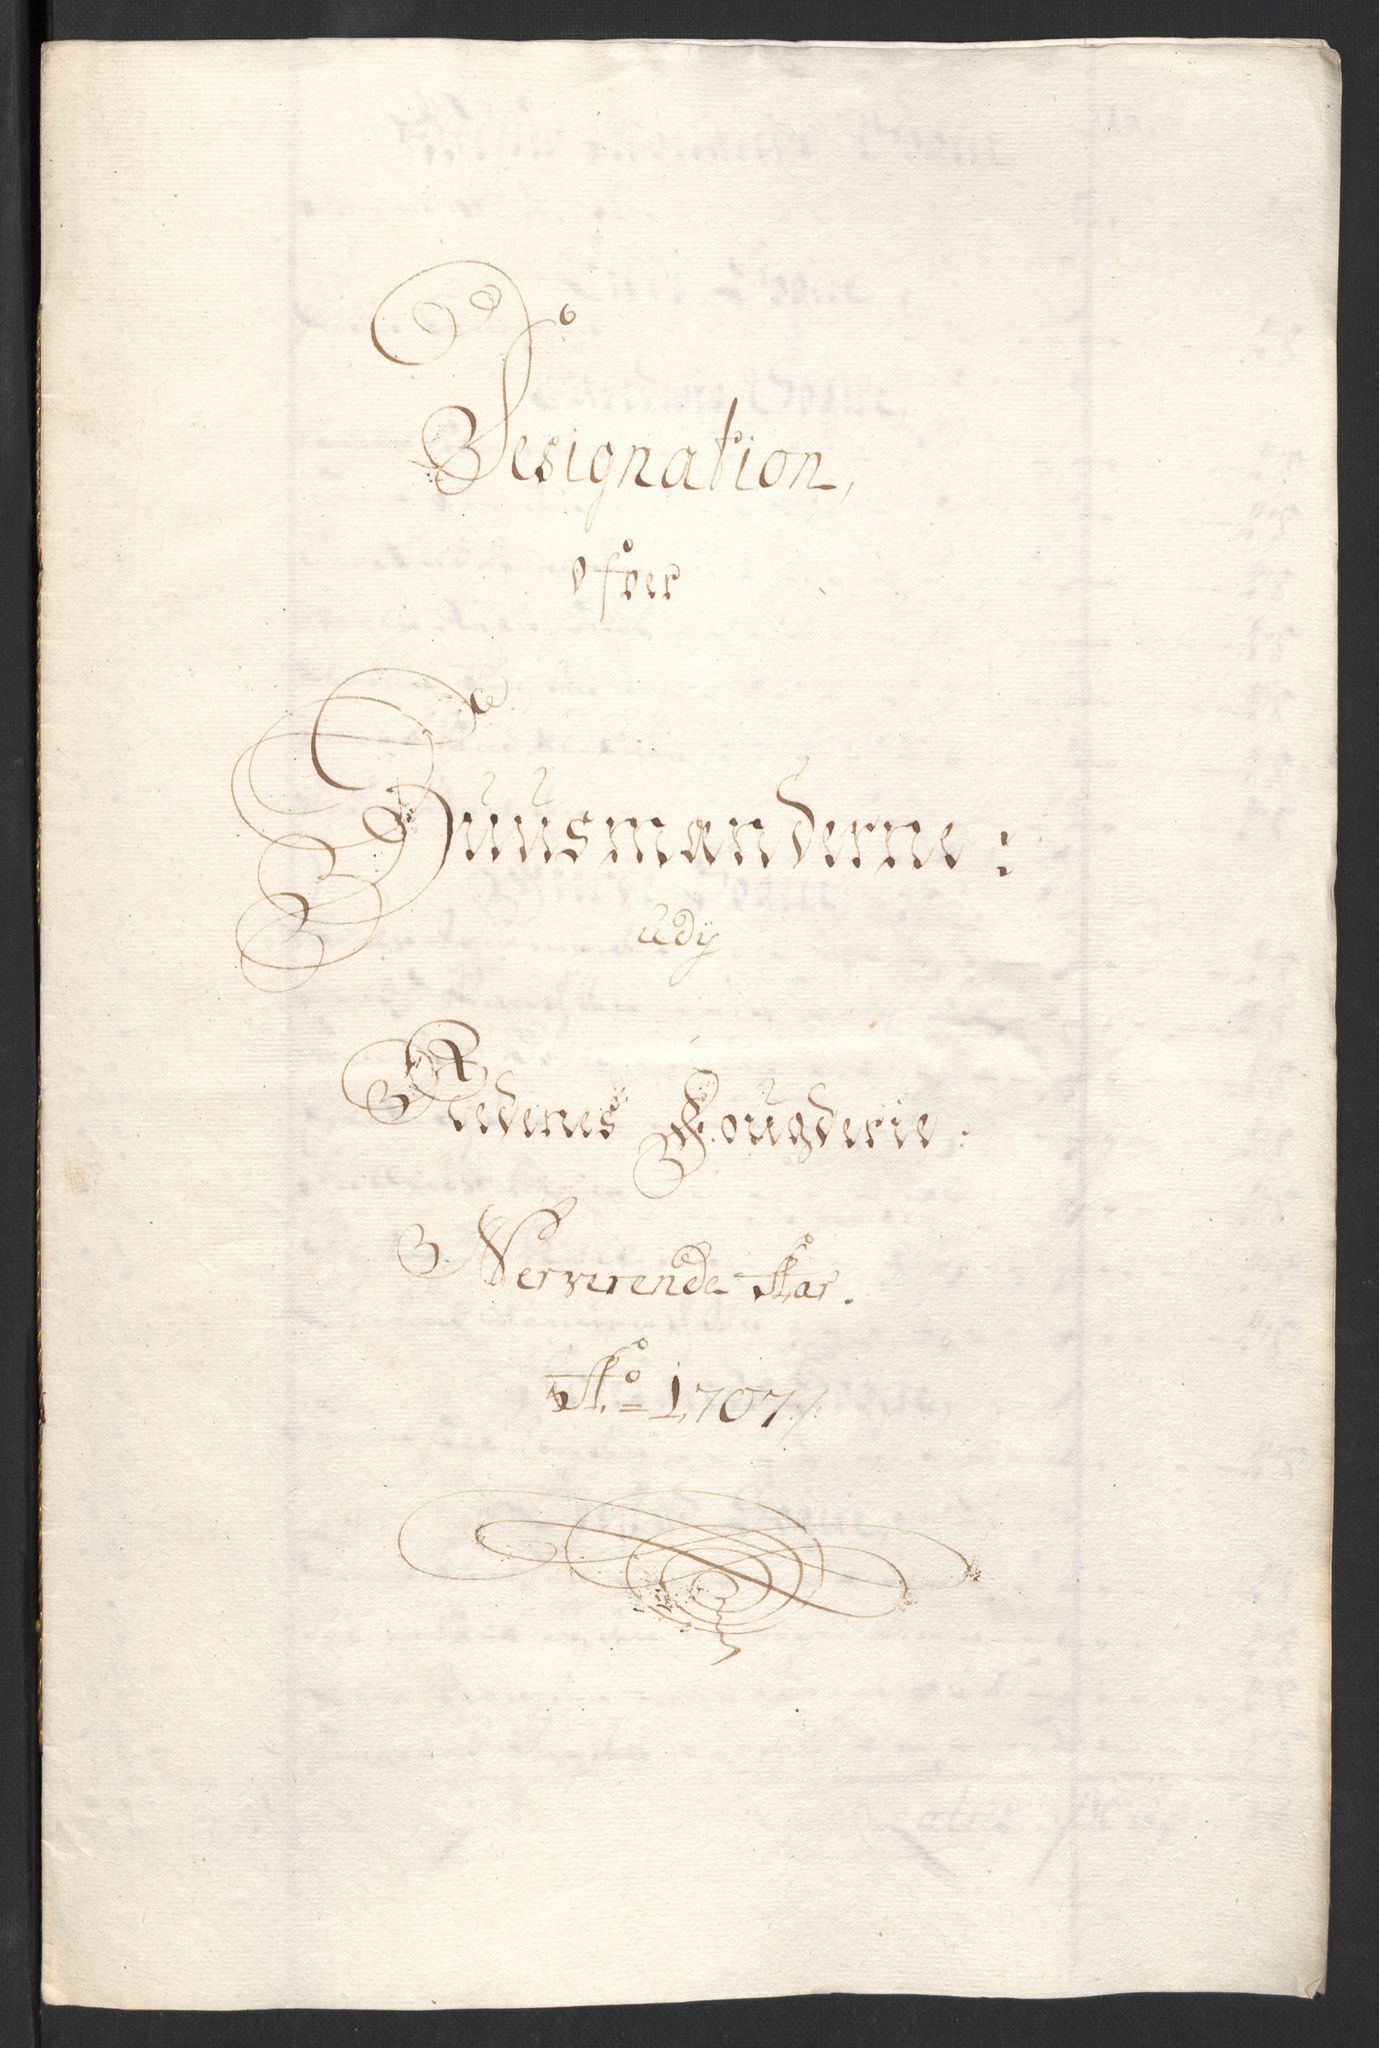 Designation,
ofver
Huusmænderne:
Udj
Nedenes Fougderie:
Nerverende Aar.
Ao 1707/: